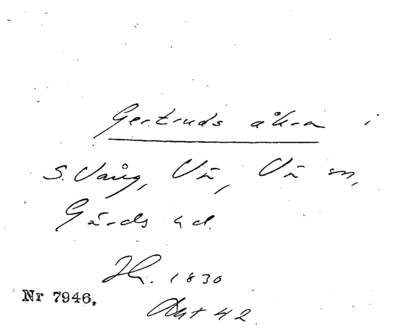 Gertruds åkra i
S. Vång, Vä, Vä sn,
Gärds hd.
Sk. 1830
Nr 7946.
Akt 42